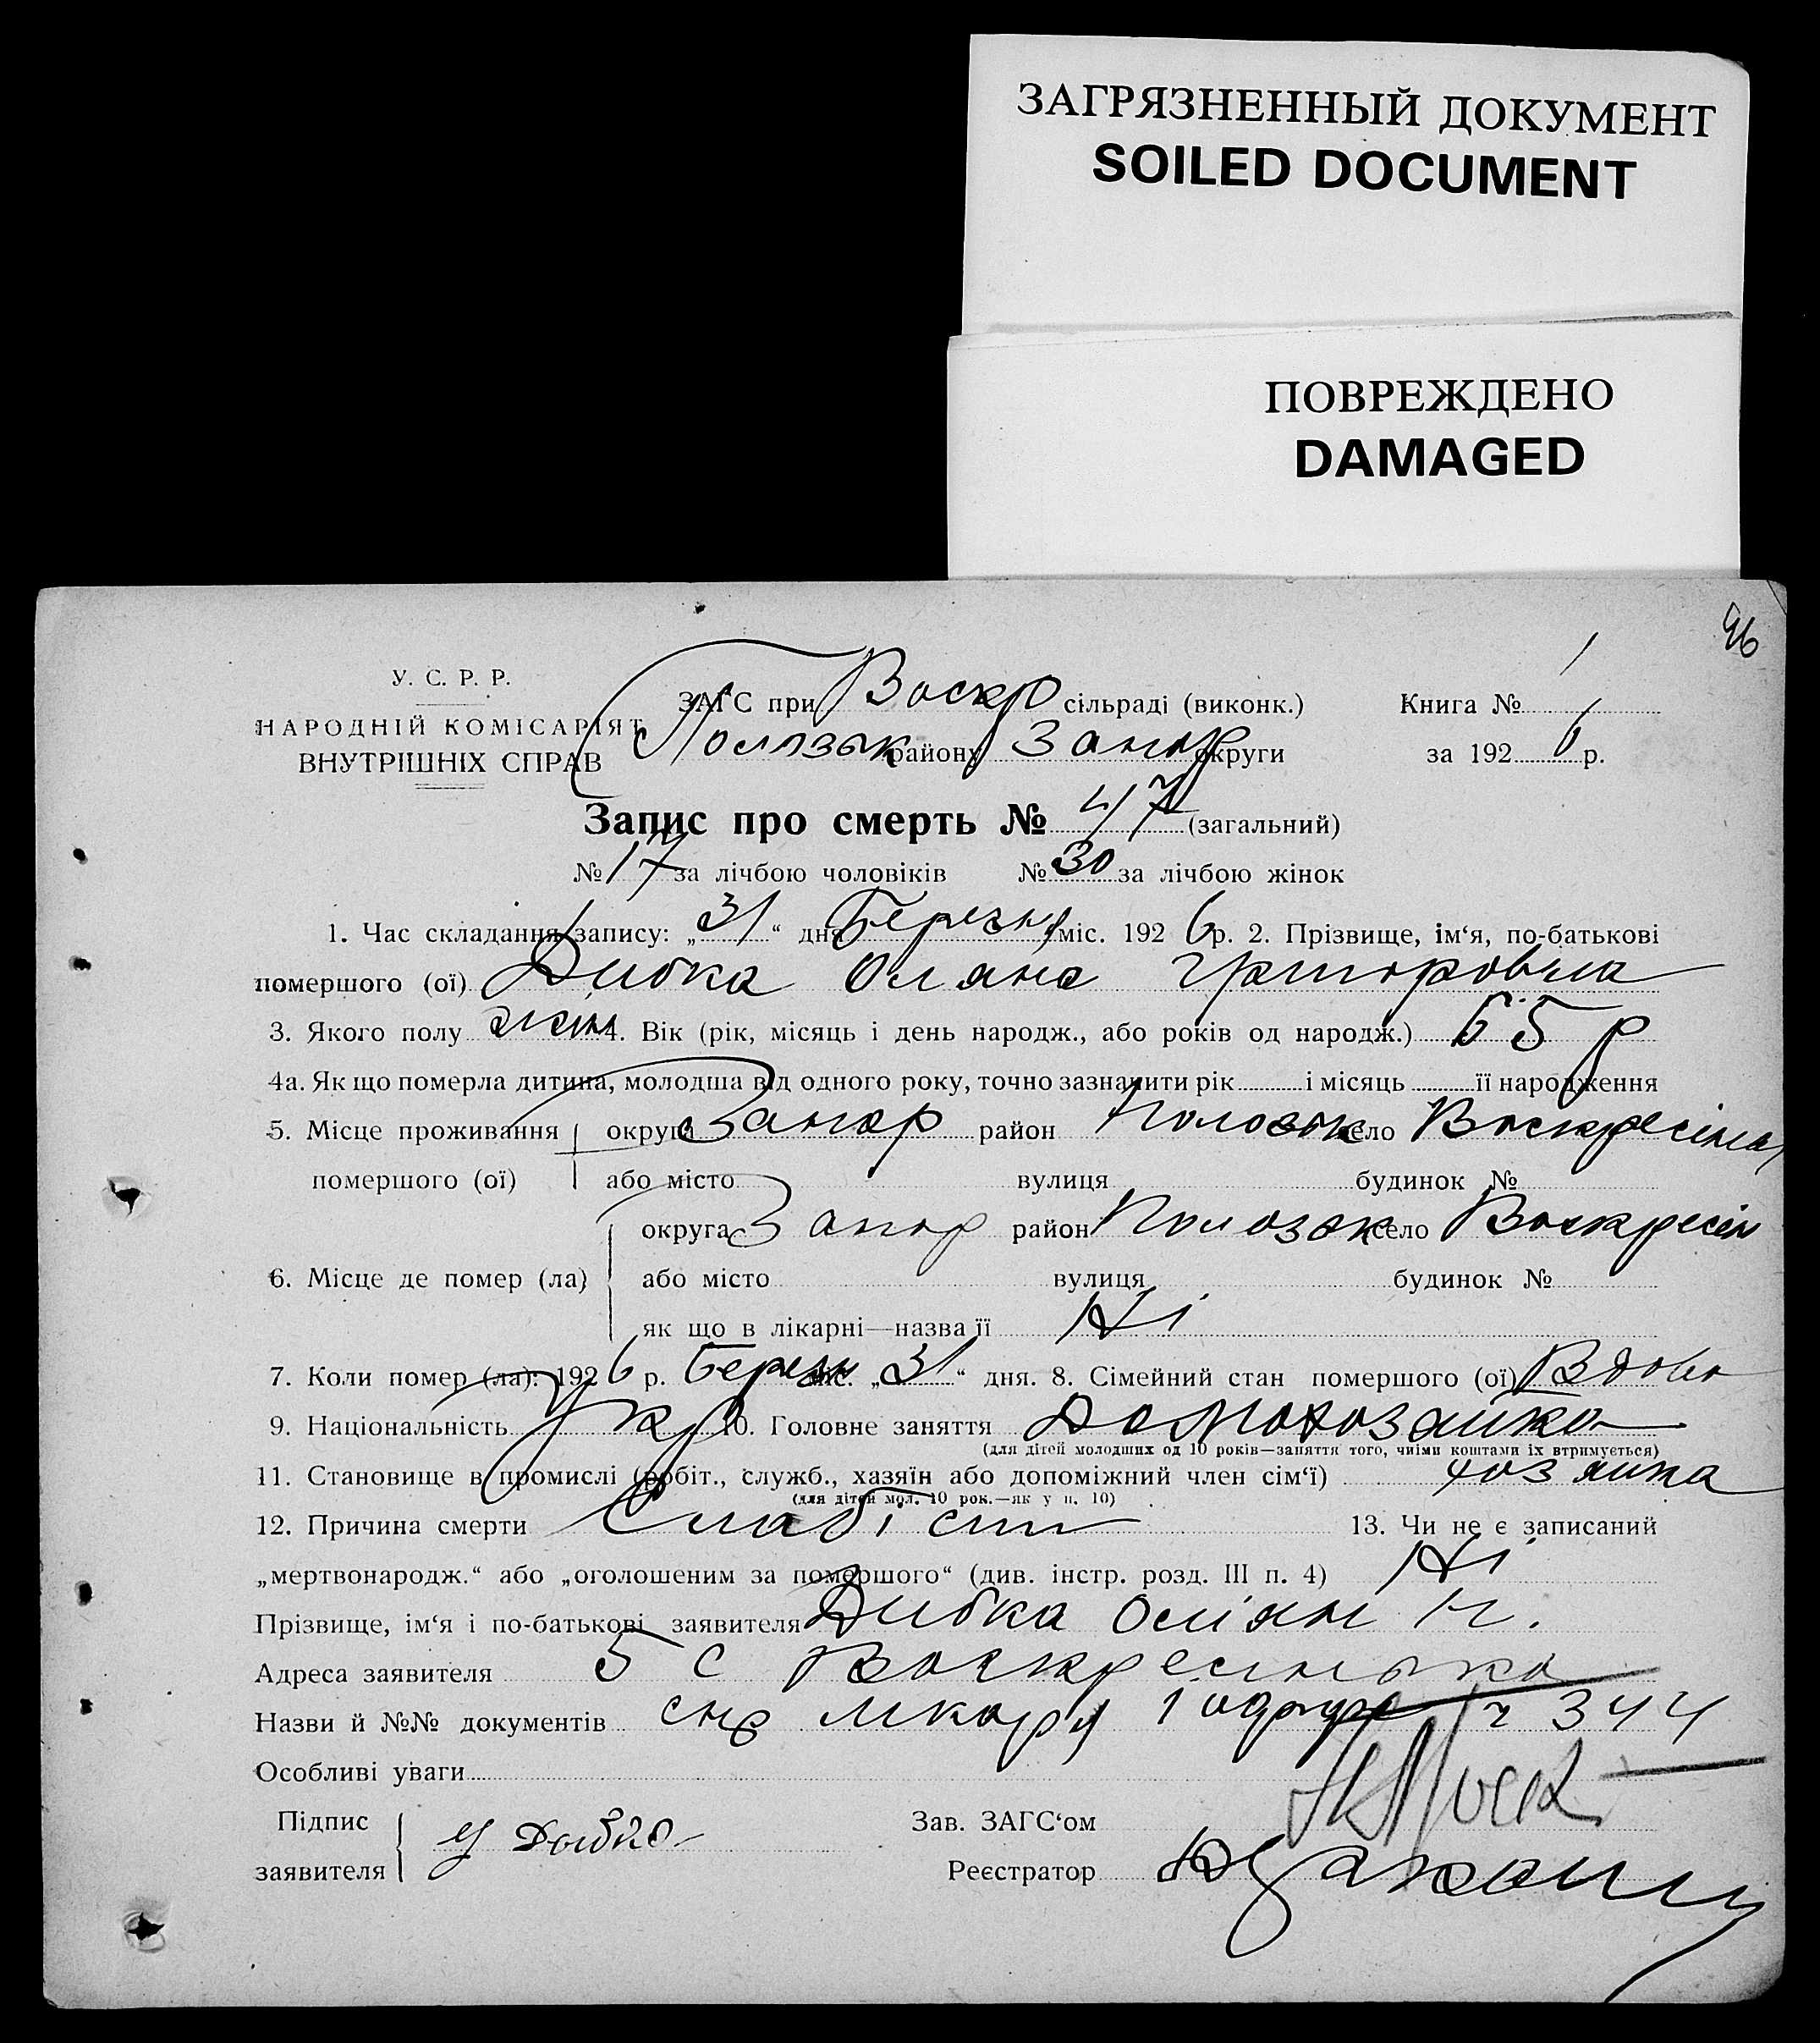 ЗАГРЯЗНЕННЫЙ ДОКУМЕНТ
SOILED DOCUMENT
ПОВРЕЖДЕНО
DAMAGED
96
У. С. Р. Р.
НАРОДНІЙ КОМІСАРІЯТ
ВНУТРІШНІХ СПРАВ
ЗАГС при Воскр сільраді (виконк.) Книга № 1
району Запор округи за 1926 р.
Запис про смерть № 47 (загальний)
№ 17 за лічбою чоловіків № 30 за лічбою жінок
1. Час складання запису: „31“ дня Березня міс. 1926 р. 2. Прізвище, ім‘я, по-батькові
помершого (ої) Дибка Оляна Григоровна
3. Якого полу жін 4. Вік (рік, місяць і день народж., або років од народж.) 65 р
4а. Як що померла дитина, молодша від одного року, точно зазначити рік і місяць її народження
5. Місце проживання округа Запор район Пологок село Воскресінка
помершого (ої) або місто вулиця будинок №
округа Запор район село Воскресін
6. Місце де помер (ла) або місто вулиця будинок №
як що в лікарні—назва її Ні
7. Коли помер (ла): 1926 р. Березн міс. „31“ дня. 8. Сімейний стан помершого (ої) Вдова
9. Національність Укр 10. Головне заняття Домохозяйка
(для дітей молодших од 10 років—заняття того, чиїми коштами їх втримується)
11. Становище в промислі (робіт., служб., хазяїн або допоміжний член сім‘ї) хозяйка
(для дітей мол. 10 рок.—як у п. 10)
12. Причина смерти Слабість 13. Чи не є записаний
„мертвонародж.“ або „оголошеним за помершого“ (див. інстр. розд. III п. 4) Ні
Прізвище, ім‘я і по-батькові заявителя Дибка
Адреса заявителя с Воскресенька
Назви й №№ документів лікаря 344
Особливі уваги
Підпис Зав. ЗАГС‘ом
заявителя Дибка Реєстратор